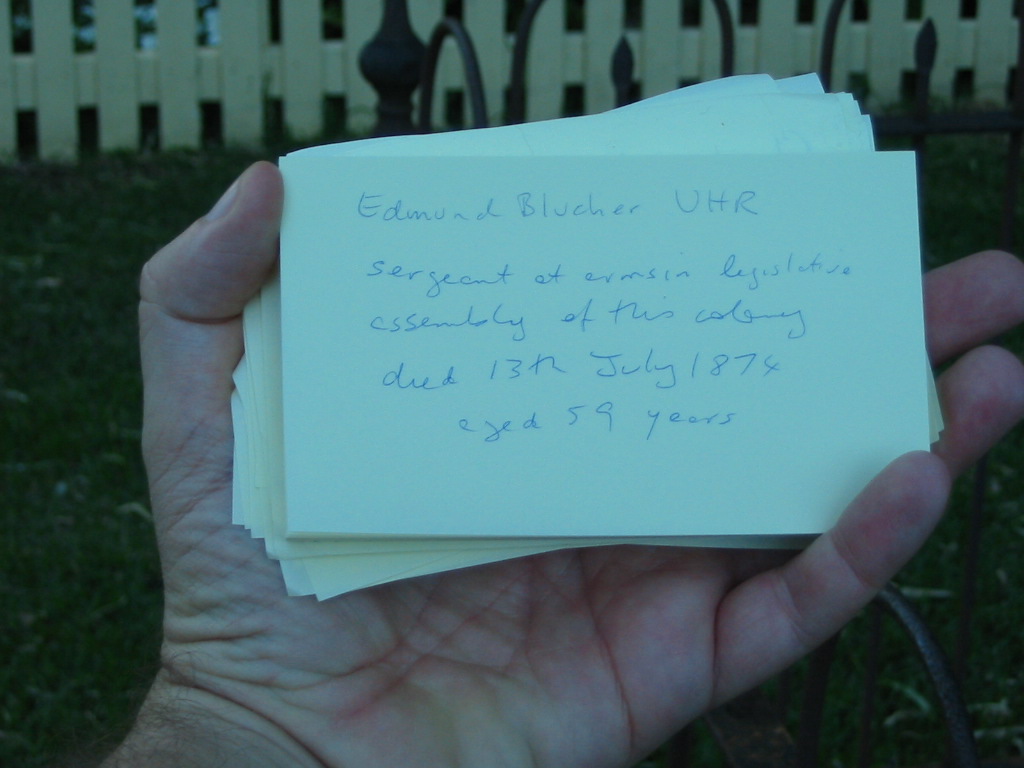 Edmund Blucher UHR
sergeant at arms in legislative
assembly of this colony
died 13th July 1874
aged 59 years